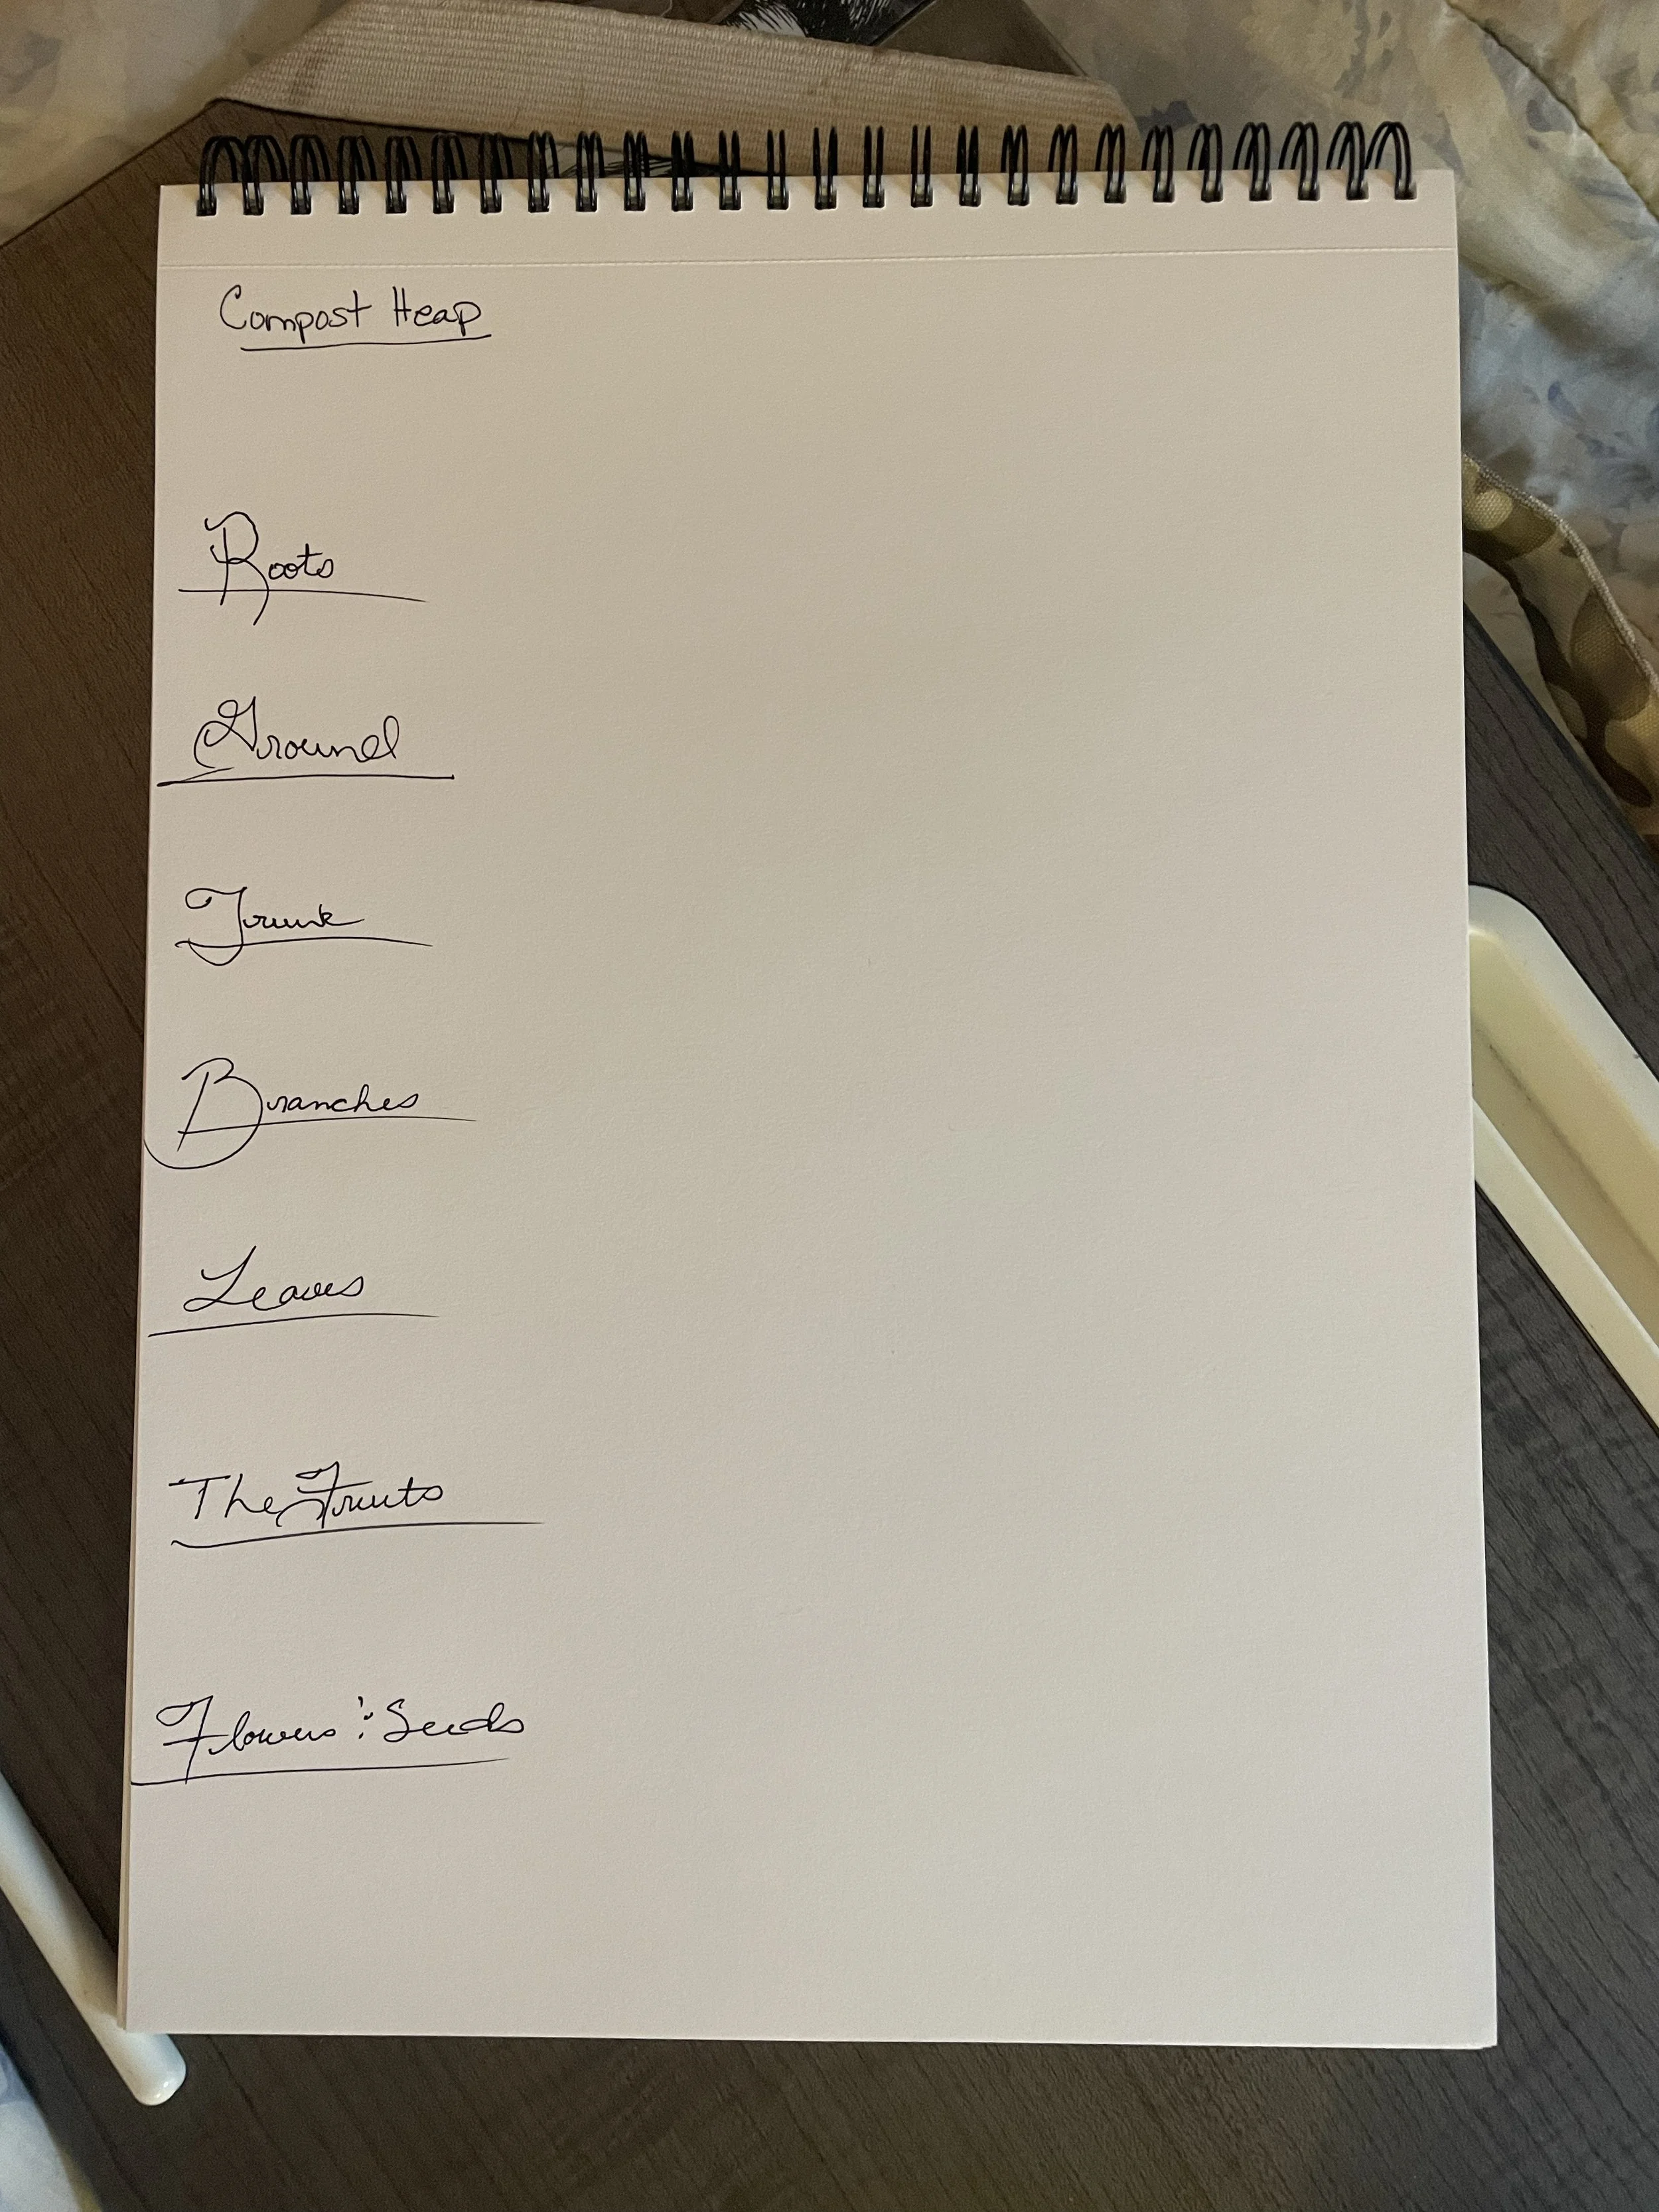 Compost Heap
Roots
Ground
Trunk
Branches
Leaves
The Fruits
Flowers & Seeds